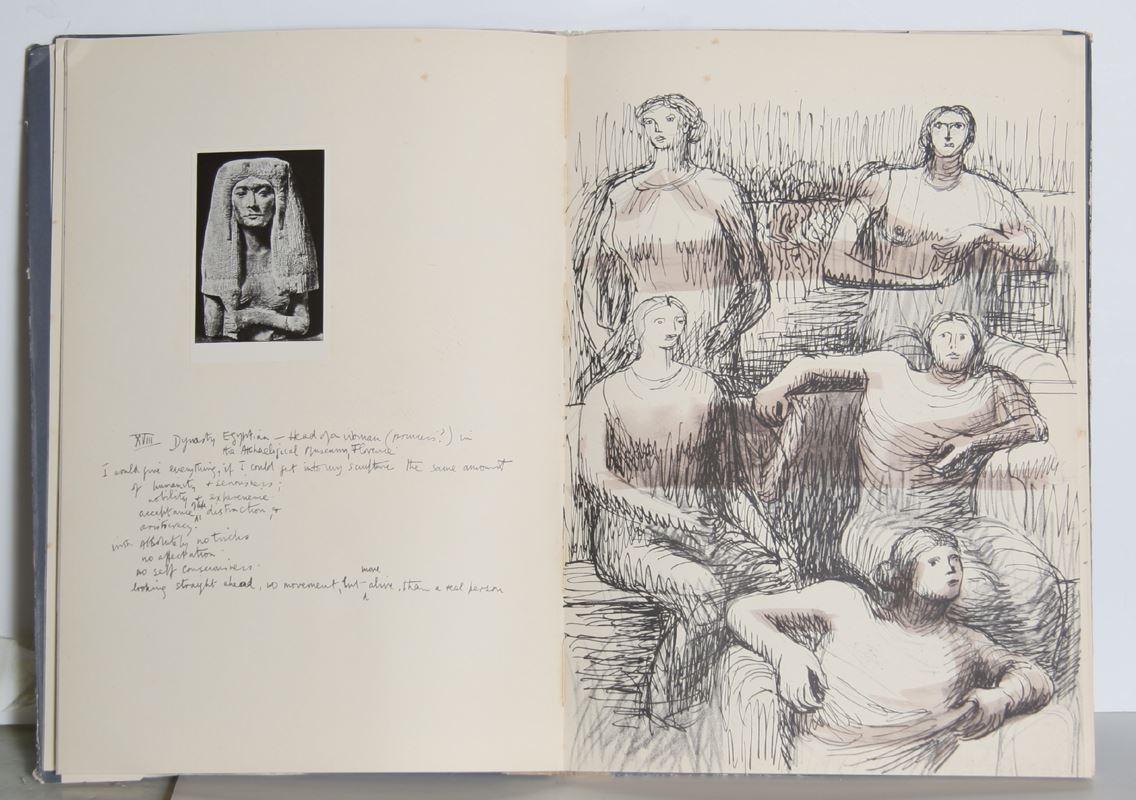 XVIII Dynasty Egyptian – Head of a Woman (princess?) in
the Archaelogical Museum, Florence
I would give everything, if I could get into my sculpture the same amount
of humanity + seriousness;
nobility + experience
acceptance of life distinction, +
aristocracy.
with Absolutely no tricks
no affectation
no self consciousness
looking straight ahead, no movement, but more alive, than a real person